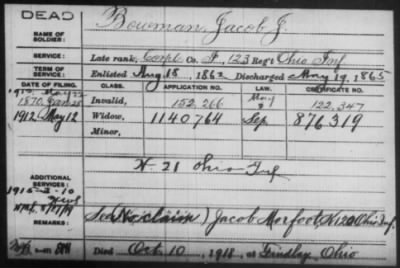 DEAD
NAME OF SOLDIER:
Bowman, Jacob J.
SERVICE:
Late rank, Corpl Co. F, 123 Reg't Ohio Inf
TERM OF SERVICE:
Enlisted Aug 18, 1862 Discharged May 19, 1865
DATE OF FILING. CLASS. APPLICATION NO. LAW. CERTIFICATE NO.
1870 Jan 28 Invalid, 152,266 122,347
1912 May 12 Widow, 1140764 Sep 876319
Minor,
K 21 Ohio Inf
ADDITIONAL SERVICES:
1915-3-10
REMARKS:
See (No claim) Jacob Morfoot, K 120 Ohio Inf.
Died Oct 10, 1911, at Findlay, Ohio